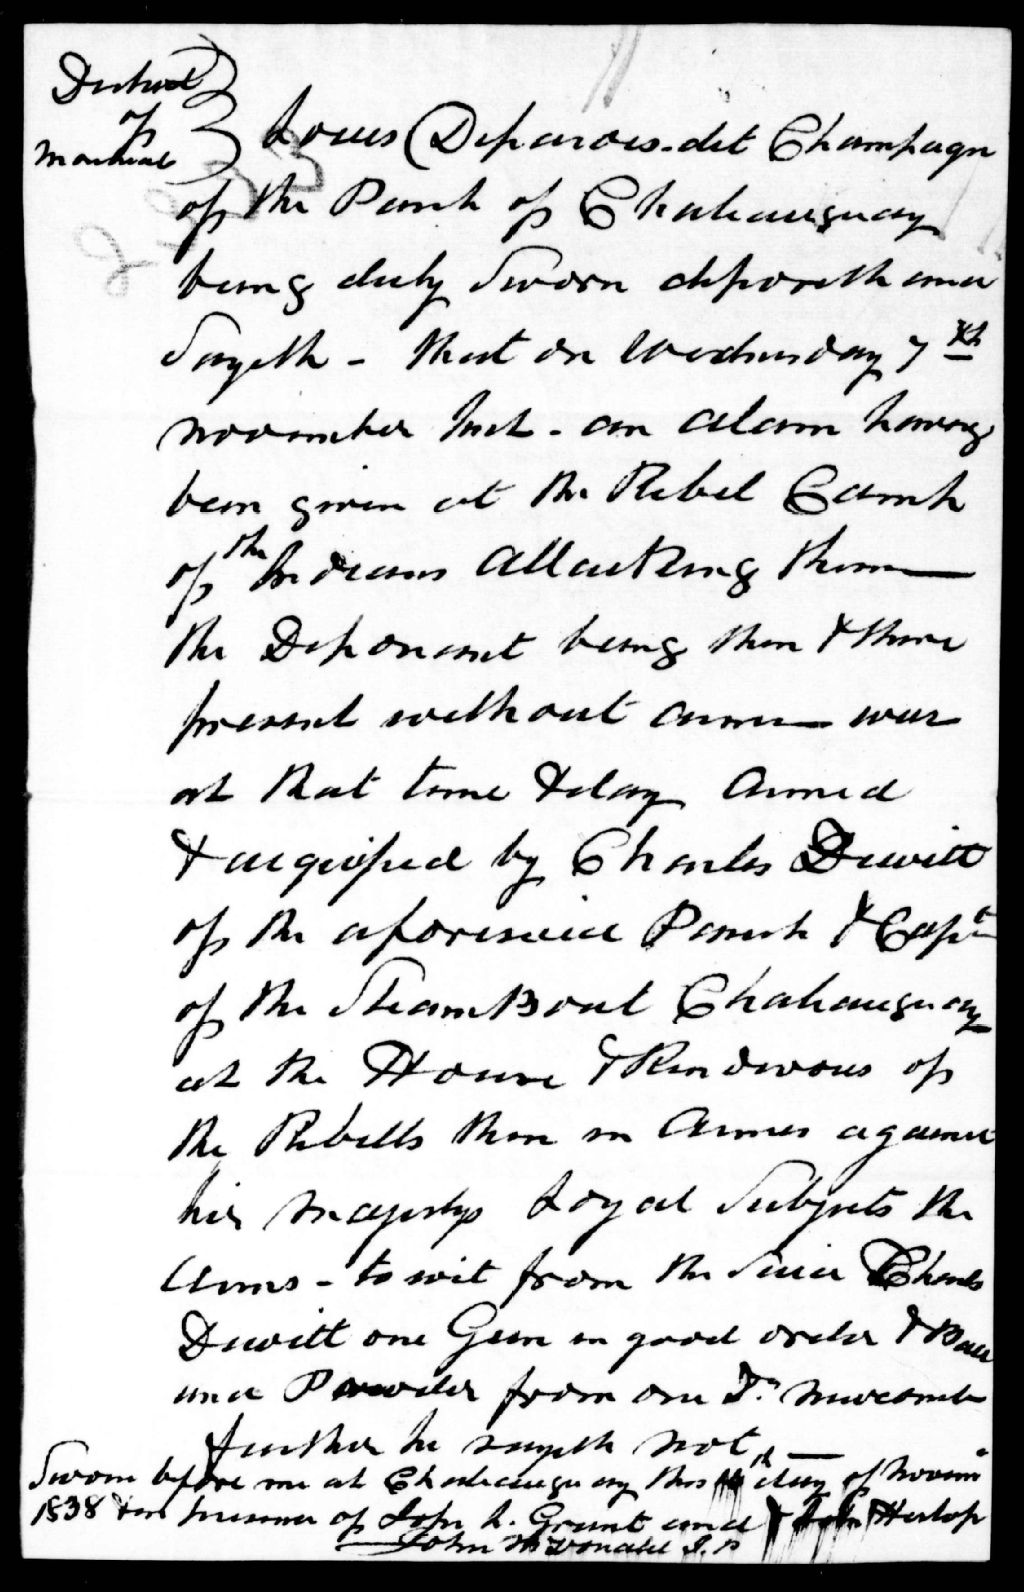 District
of
Montreal
Louis Deparois dit Champagn
of the Parish of Chateauguay
being duly Sworn deposeth and
Sayeth - that on Wednesday 7th
november Inst - an alarm having
been given at the Rebel Camp
of the Indians Attacking them
the Deponent being then & there
present without arms was
at that time & day armed
& aequiped by Charles Dewitt
of the aforesaid Parish & Capt
of the Steam Boat Chateauguay
at the House & Rendevous of
the Rebells then in Armes against
her Majestys Loyal Subjects the
Arms - to wit from the Said Charls
Dewitt one Gun in good order & Ball
and Powder from one Dr. Newcomb
further he sayeth not
Sworn before me at Chateauguay this day of Novem
1838 in presence of John L. Grant and John Hislop
John McDonald J.P